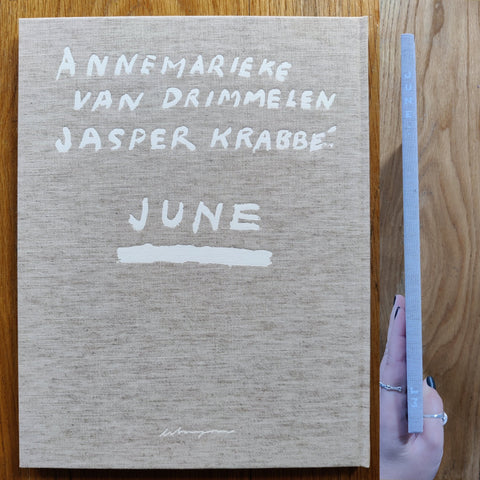 ANNEMARIEKE
VAN DRIMMELEN
JASPER KRABBÉ
JUNE
JUNE